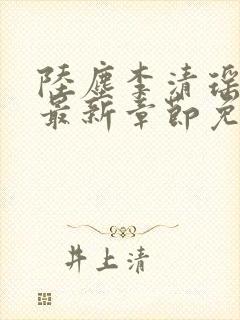 陸塵李清瑶
最新章節免
井上清